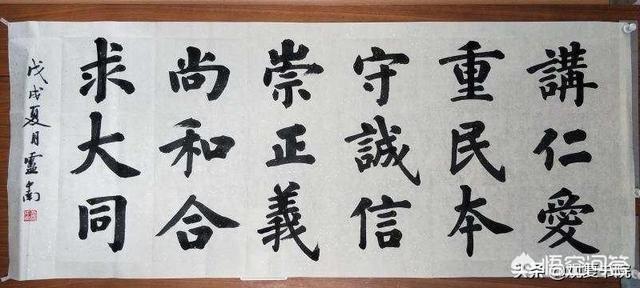 講仁愛
重民本
守誠信
崇正義
尚和合
求大同
戊戌夏月靈南
悟空问答
头条@观复书院